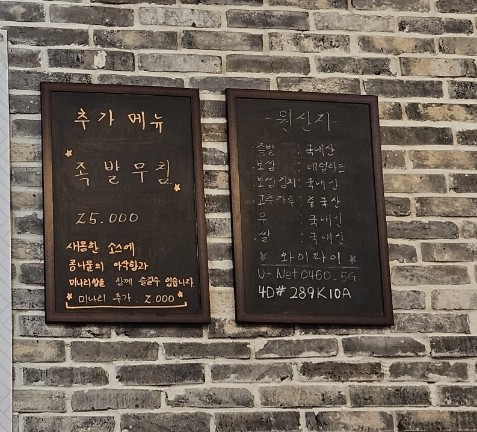 추가 메뉴
족발무침
25.000
새콤한 소스에
콩나물의 아삭함과
미나리향을 함께 즐길수 있습니다
미나리 추가 2.000
-원산지-
족발 : 국내산
보쌈 : 네덜란드
보쌈김치 : 국내산
고추가루 : 중국산
무 : 국내산
쌀 : 국내산
와이파이
U-Net0460.5G
4D#289K10A